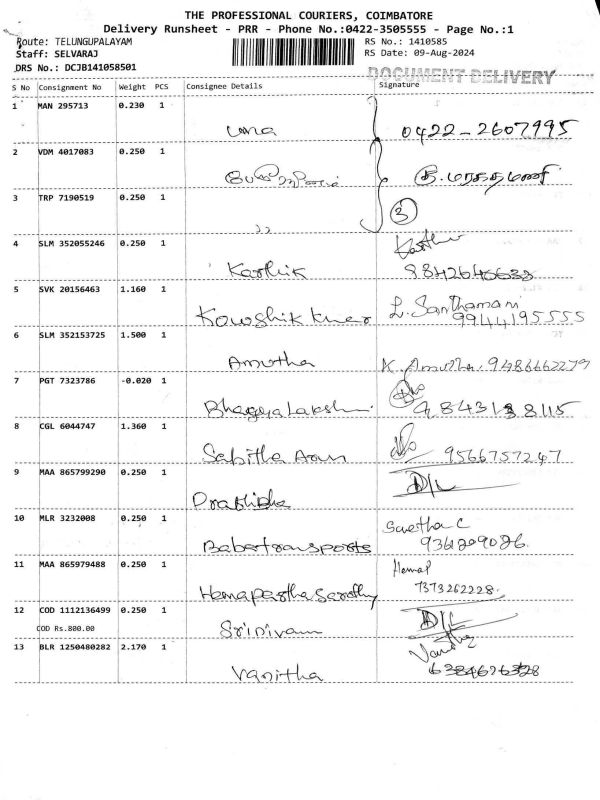 THE PROFESSIONAL COURIERS, COIMBATORE
Delivery Runsheet - PRR - Phone No.:0422-3505555 - Page No.:1
Route: TELUNGUPALAYAM
RS No.: 1410585
Staff: SELVARAJ
RS Date: 09-Aug-2024
DRS No.: DCJB141058501
DOCUMENT DELIVERY
S No Consignment No Weight PCS Consignee Details Signature
1 MAN 295713 0.230 1
uma 0422-2607995
2 VDM 4017083 0.250 1
3 TRP 7190519 0.250 1
3
,,
4 SLM 352055246 0.250 1
Karthik
5 SVK 20156463 1.160 1 L. Santhamani
Kowshik kumar 9944195555
6 SLM 352153725 1.500 1
Amutha K. Amutha. 9486662279
7 PGT 7323786 -0.020 1
Bhagyalakshmi
8 CGL 6044747 1.360 1
Sabitha Arun 9566757247
9 MAA 865799290 0.250 1
D/L
10 MLR 3232008 0.250 1 Swetha C
Babatransports
11 MAA 865979488 0.250 1 Hemap
Hemaparthasarathy 7373262228
12 COD 1112136499 0.250 1
D/L
COD Rs.800.00 Srinivasan
13 BLR 1250480282 2.170 1
Vanitha